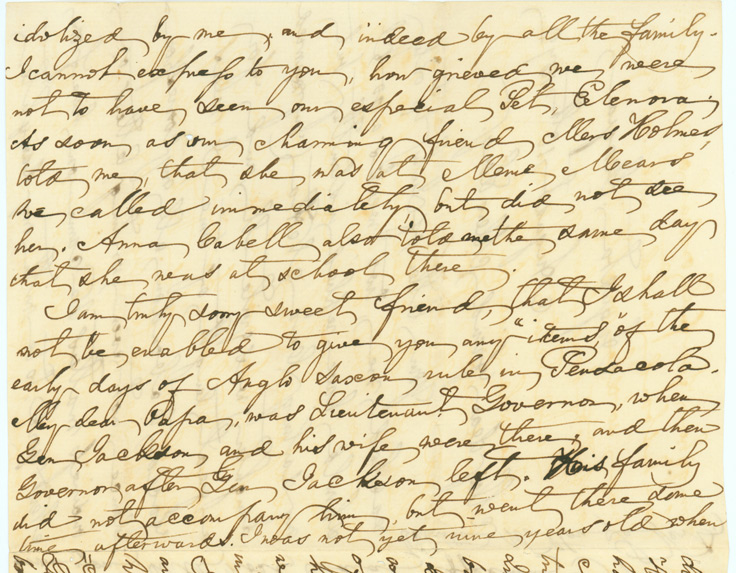 idolized by me, and, indeed by all the family.
I cannot express to you, how grieved we were
not to have seen our especial Pet, Elenora,
As soon as our charming friend Mers Holmes
told me, that she was at Meme Mears,
we called immediately, but did not see
her. Anna Cabell also told me the same day
that she was at school there.
I am truly sorry sweet friend, that I shall
not be enabled to give you any "items," of the
early days of Anglo Saxon rule in Pensacola.
My dear Papa, was Lieutenant Governor, when
Gen Jackson and his wife were there, and then
Governor after Gen Jackson left. His family
did not accompany him, but went there some
time afterwards. I was not yet nine years old when